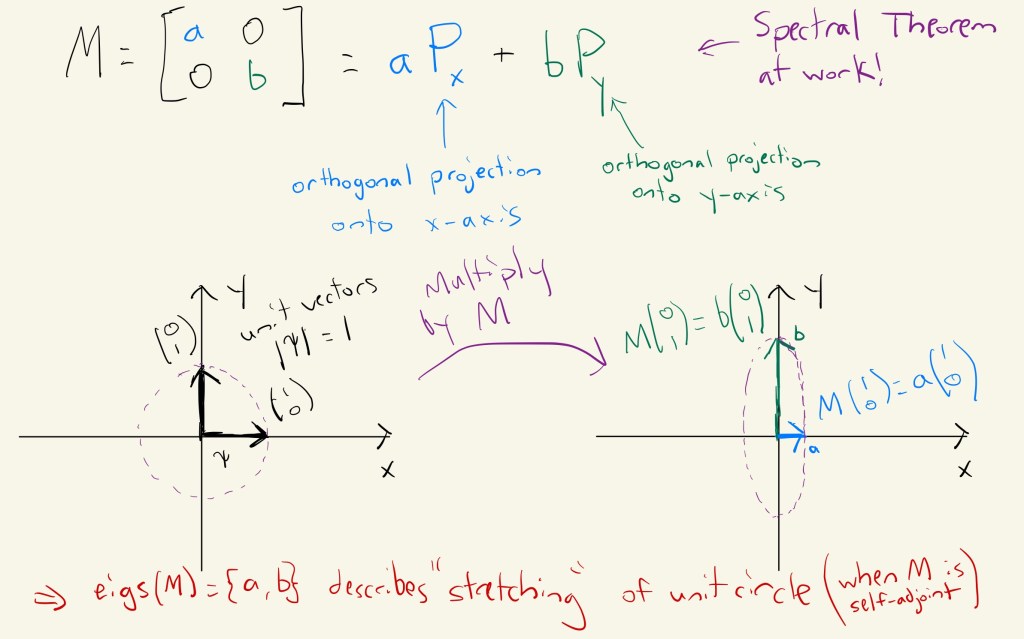 M = [a 0 0 b] = a Pₓ + b Pᵧ ← Spectral Theorem
at work!
orthogonal projection
onto x-axis
orthogonal projection
onto y-axis
Y
unit vectors
|ψ| = 1
(0 1)
(1 0)
ψ
x
Multiply
by M
M(0 1) = b(0 1)
Y
b
M(1 0) = a(1 0)
a
x
⇒ eigs(M) = {a, b} describes "stretching" of unit circle (when M is
self-adjoint)